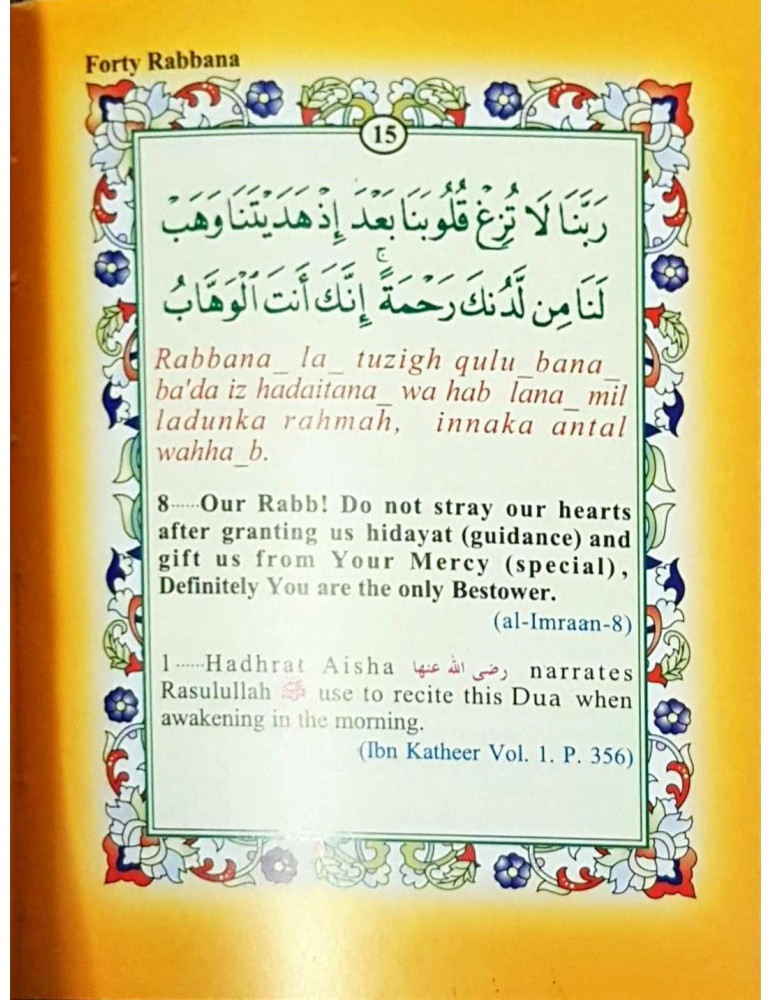 Forty Rabbana
15
رَبَّنَا لَا تُزِغْ قُلُوبَنَا بَعْدَ إِذْ هَدَيْتَنَا وَهَبْ
لَنَا مِن لَّدُنكَ رَحْمَةً ۚ إِنَّكَ أَنتَ ٱلْوَهَّابُ
Rabbana_ la_ tuzigh qulu_bana_
ba'da iz hadaitana_ wa hab lana_ mil
ladunka rahmah, innaka antal
wahha_b.
8······Our Rabb! Do not stray our hearts
after granting us hidayat (guidance) and
gift us from Your Mercy (special),
Definitely You are the only Bestower.
(al-Imraan-8)
1······Hadhrat Aisha رضى الله عنها narrates
Rasulullah ﷺ use to recite this Dua when
awakening in the morning.
(Ibn Katheer Vol. 1. P. 356)